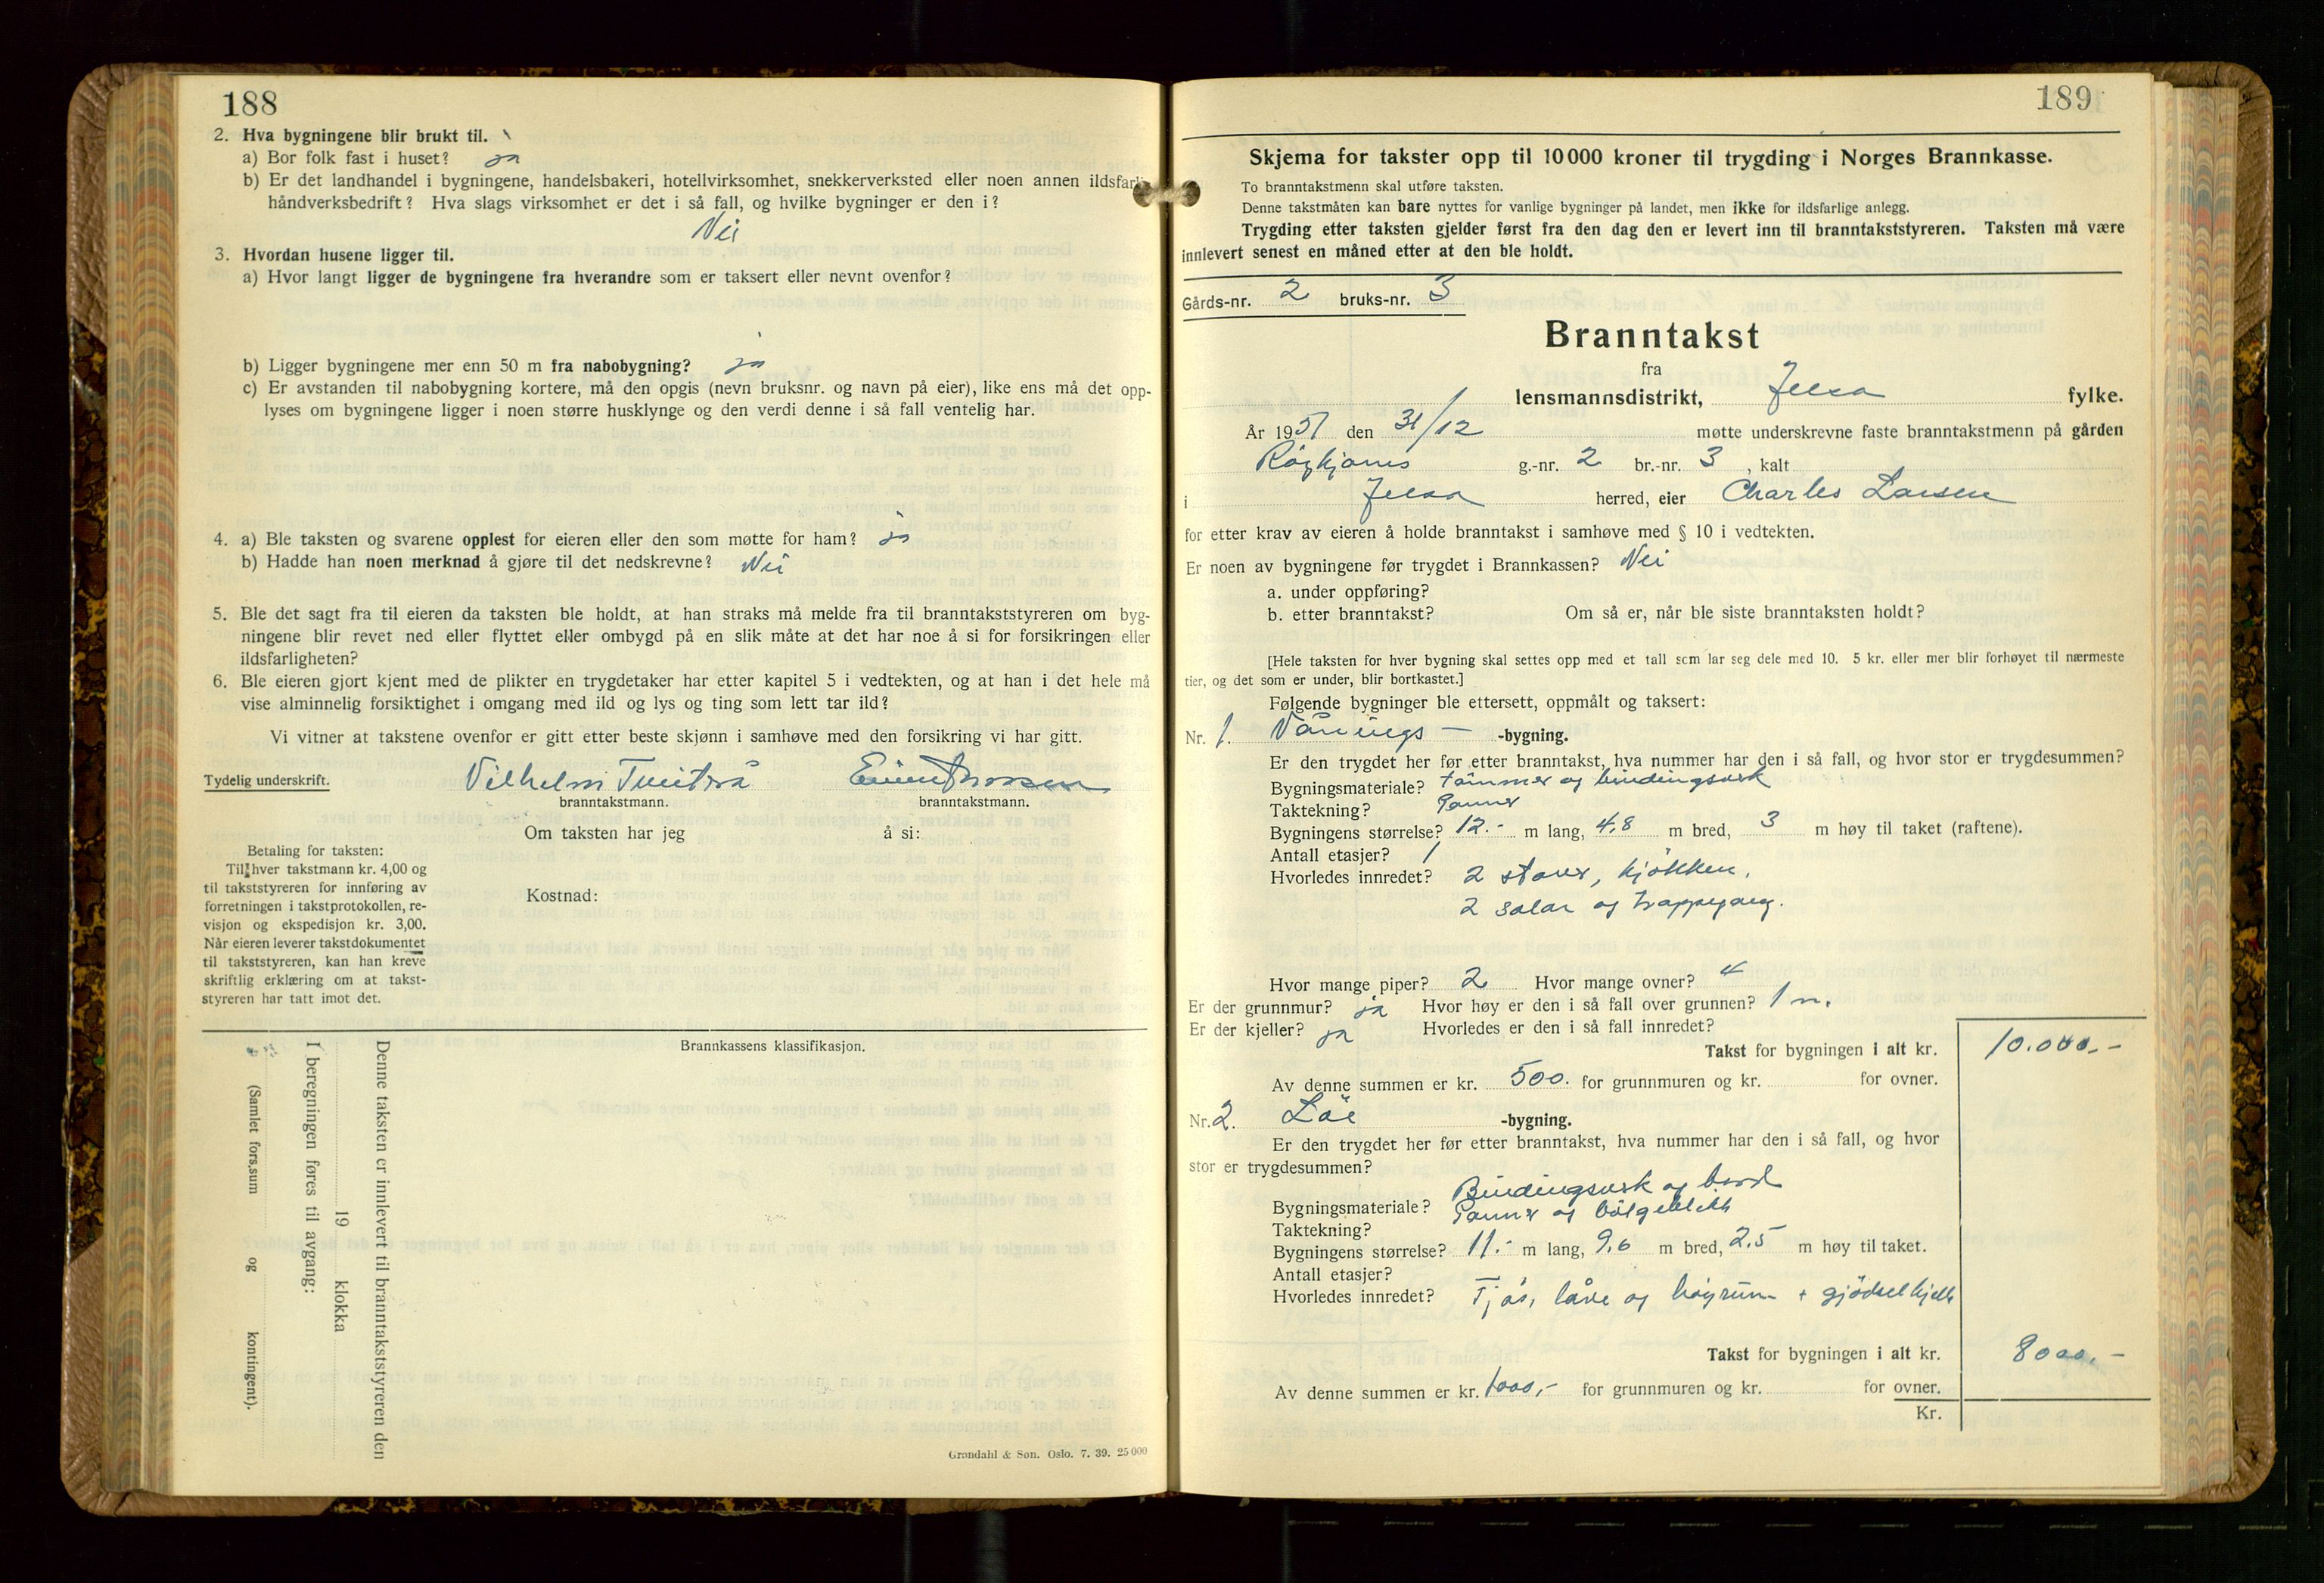 188
2. Hva bygningene blir brukt til.
a) Bor folk fast i huset? ja
b) Er det landhandel i bygningene, handelsbakeri, hotellvirksomhet, snekkerverksted eller noen annen ildsfarlig
håndverksbedrift? Hva slags virksomhet er det i så fall, og hvilke bygninger er den i?
Nei
3. Hvordan husene ligger til.
a) Hvor langt ligger de bygningene fra hverandre som er taksert eller nevnt ovenfor?
b) Ligger bygningene mer enn 50 m fra nabobygning? ja
c) Er avstanden til nabobygning kortere, må den opgis (nevn bruksnr. og navn på eier), like ens må det opp-
lyses om bygningene ligger i noen større husklynge og den verdi denne i så fall ventelig har.
4. a) Ble taksten og svarene opplest for eieren eller den som møtte for ham? ja
b) Hadde han noen merknad å gjøre til det nedskrevne? Nei
5. Ble det sagt fra til eieren da taksten ble holdt, at han straks må melde fra til branntakststyreren om byg-
ningene blir revet ned eller flyttet eller ombygd på en slik måte at det har noe å si for forsikringen eller
ildsfarligheten?
6. Ble eieren gjort kjent med de plikter en trygdetaker har etter kapitel 5 i vedtekten, og at han i det hele må
vise alminnelig forsiktighet i omgang med ild og lys og ting som lett tar ild?
Vi vitner at takstene ovenfor er gitt etter beste skjønn i samhøve med den forsikring vi har gitt.
Tydelig underskrift. Vilhelm Tveiterå
branntakstmann. branntakstmann.
Om taksten har jeg å si:
Betaling for taksten:
Til hver takstmann kr. 4,00 og
til takststyreren for innføring av
forretningen i takstprotokollen, re-
visjon og ekspedisjon kr. 3,00.
Når eieren leverer takstdokumentet
til takststyreren, kan han kreve
skriftlig erklæring om at takst-
styreren har tatt imot det.
Kostnad:
Brannkassens klassifikasjon.
Denne taksten er innlevert til branntakststyreren den
19 klokka
I beregningen føres til avgang:
(Samlet fors.sum og kontingent).
Grøndahl & Søn. Oslo. 7. 39. 25 000
189
Skjema for takster opp til 10 000 kroner til trygding i Norges Brannkasse.
To branntakstmenn skal utføre taksten.
Denne takstmåten kan bare nyttes for vanlige bygninger på landet, men ikke for ildsfarlige anlegg.
Trygding etter taksten gjelder først fra den dag den er levert inn til branntakststyreren. Taksten må være
innlevert senest en måned etter at den ble holdt.
Gårds-nr. 2 bruks-nr. 3
Branntakst
fra
lensmannsdistrikt, Jelsa fylke.
År 1951 den 31/12 møtte underskrevne faste branntakstmenn på gården
g.-nr. 2 br.-nr. 3, kalt
i Jelsa herred, eier Charles Larsen
for etter krav av eieren å holde branntakst i samhøve med § 10 i vedtekten.
Er noen av bygningene før trygdet i Brannkassen? Nei
a. under oppføring?
b. etter branntakst? Om så er, når ble siste branntaksten holdt?
[Hele taksten for hver bygning skal settes opp med et tall som lar seg dele med 10. 5 kr. eller mer blir forhøyet til nærmeste
tier, og det som er under, blir bortkastet.]
Følgende bygninger ble ettersett, oppmålt og taksert:
Nr. 1. Vånings- -bygning.
Er den trygdet her før etter branntakst, hva nummer har den i så fall, og hvor stor er trygdesummen?
Bygningsmateriale? tømmer og bindingsverk
Taktekning? Panner
Bygningens størrelse? 12.- m lang, 4,8 m bred, 3 m høy til taket (raftene).
Antall etasjer? 1
Hvorledes innredet? 2 stover, kjøkken,
2 salar og trappegang.
Hvor mange piper? 2 Hvor mange ovner? 4
Er der grunnmur? ja Hvor høy er den i så fall over grunnen? 1 m.
Er der kjeller? ja Hvorledes er den i så fall innredet?
Takst for bygningen i alt kr. 10.000.-
Av denne summen er kr. 500. for grunnmuren og kr. for ovner.
Nr. 2. Løe -bygning.
Er den trygdet her før etter branntakst, hva nummer har den i så fall, og hvor
stor er trygdesummen?
Bygningsmateriale? Bindingsverk og bord
Taktekning? Panner og bølgeblikk
Bygningens størrelse? 11.- m lang, 9,6 m bred, 2,5 m høy til taket.
Antall etasjer?
Hvorledes innredet? Fjøs, låve og høyrum + gjødselkjell
Takst for bygningen i alt kr. 8000.-
Av denne summen er kr. 1000,- for grunnmuren og kr. for ovner.
Kr.